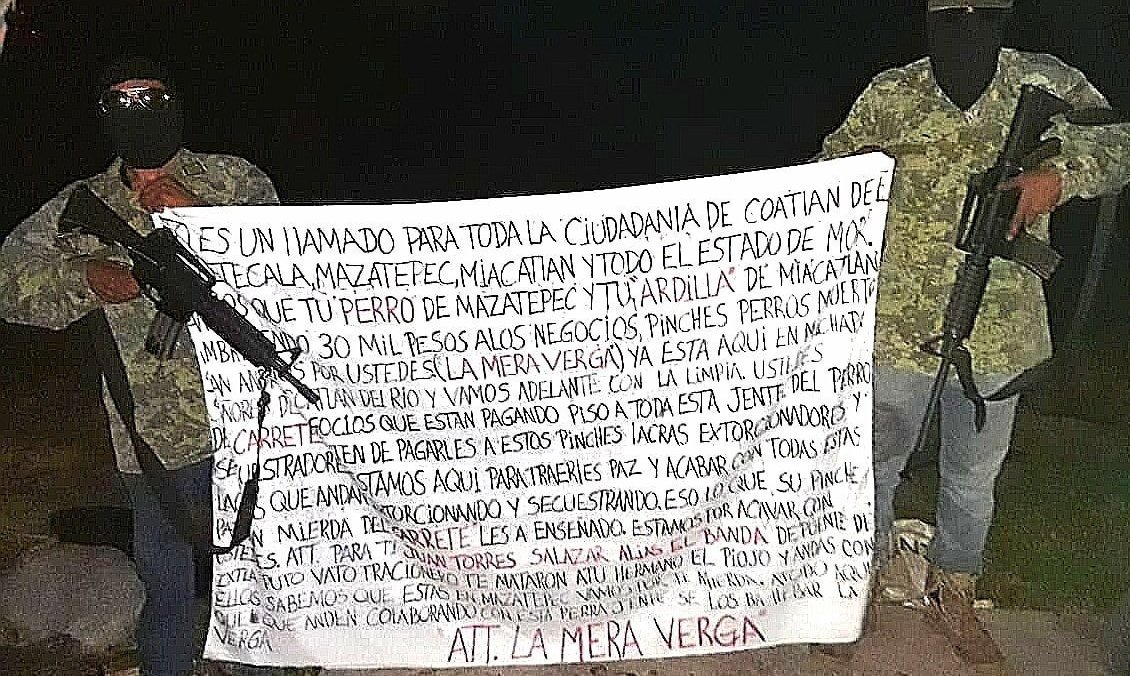 ES UN llAMADO PARA TODA LA CIUDADANIA DE COATlAN DEL
TECALA, MAZATEPEC, MIACATlAN Y TODO EL ESTADO DE MOR.
QUE TU PERRO DE MAZATEPEC Y TU "ARDILLA" DE MIACATLAN
30 MIL PESOS A LOS NEGOCIOS, PINCHES PERROS MUERTO
POR USTEDES (LA MERA VERGA) YA ESTA AQUI EN
DEL RIO Y VAMOS ADELANTE CON LA LIMPIA USTEDES
DE CARRETE QUE ESTAN PAGANDO PISO A TODA ESTA JENTE DEL PERRO
DE PAGARLES A ESTOS PINCHES lACRAS EXTORCIONADORO Y
QUE ANDAN ESTAMOS AQUI PARA TRAERlES PAZ Y ACABAR CON TODAS ESTAS
Y SECUESTRANDO. ESO LO QUE SU PINCHE
MIERDA DEL CARRETE LES A ENSEÑADO. ESTAMOS POR ACAVAR CON
ATT. PARA TI JUAN TORRES SALAZAR AlIAS EL BANDA DE PUENTE DE
PUTO VATO TE MATARON A TU HERMANO EL PIOJO Y ANDAS CON
ELLOS SABEMOS QUE ESTAS EN MAZATEPEC VAMOS POR TI MIERDA. A TODO AQUI
QUE ANDEN COLABORANDO CON ESTA PERRA JENTE SE LOS BA LA
VERGA
"ATT. LA MERA VERGA"